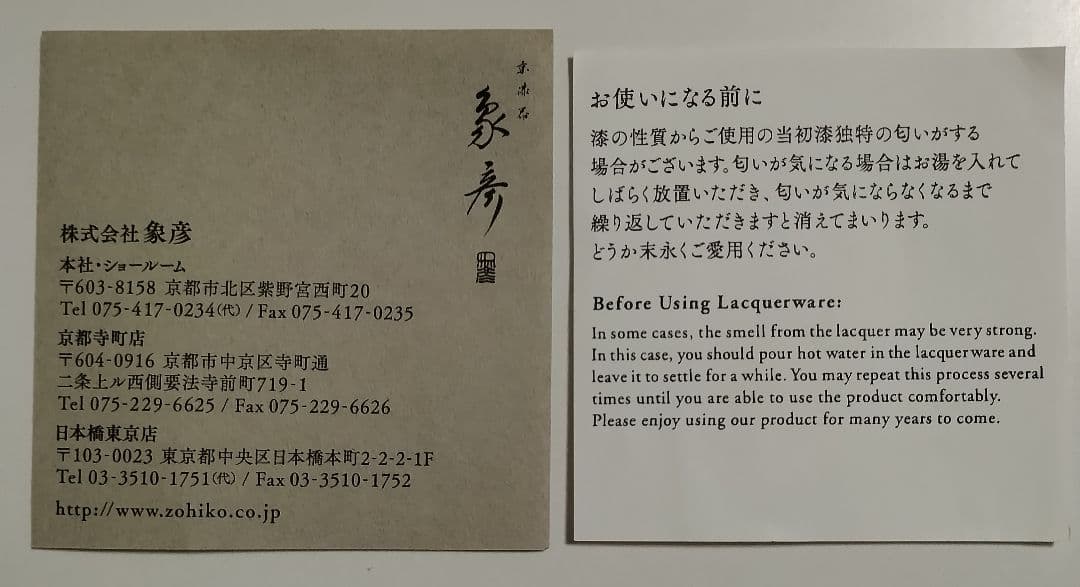 京漆器
象彦
株式会社 象彦
本社・ショールーム
〒603-8158 京都市北区紫野宮西町20
Tel 075-417-0234(代) / Fax 075-417-0235
京都寺町店
〒604-0916 京都市中京区寺町通
二条上ル西側要法寺前町719-1
Tel 075-229-6625 / Fax 075-229-6626
日本橋東京店
〒103-0023 東京都中央区日本橋本町2-2-2-1F
Tel 03-3510-1751(代) / Fax 03-3510-1752
http://www.zohiko.co.jp
お使いになる前に
漆の性質からご使用の当初漆独特の匂いがする
場合がございます。匂いが気になる場合はお湯を入れて
しばらく放置いただき、匂いが気にならなくなるまで
繰り返していただきますと消えてまいります。
どうか末永くご愛用ください。
Before Using Lacquerware:
In some cases, the smell from the lacquer may be very strong.
In this case, you should pour hot water in the lacquerware and
leave it to settle for a while. You may repeat this process several
times until you are able to use the product comfortably.
Please enjoy using our product for many years to come.